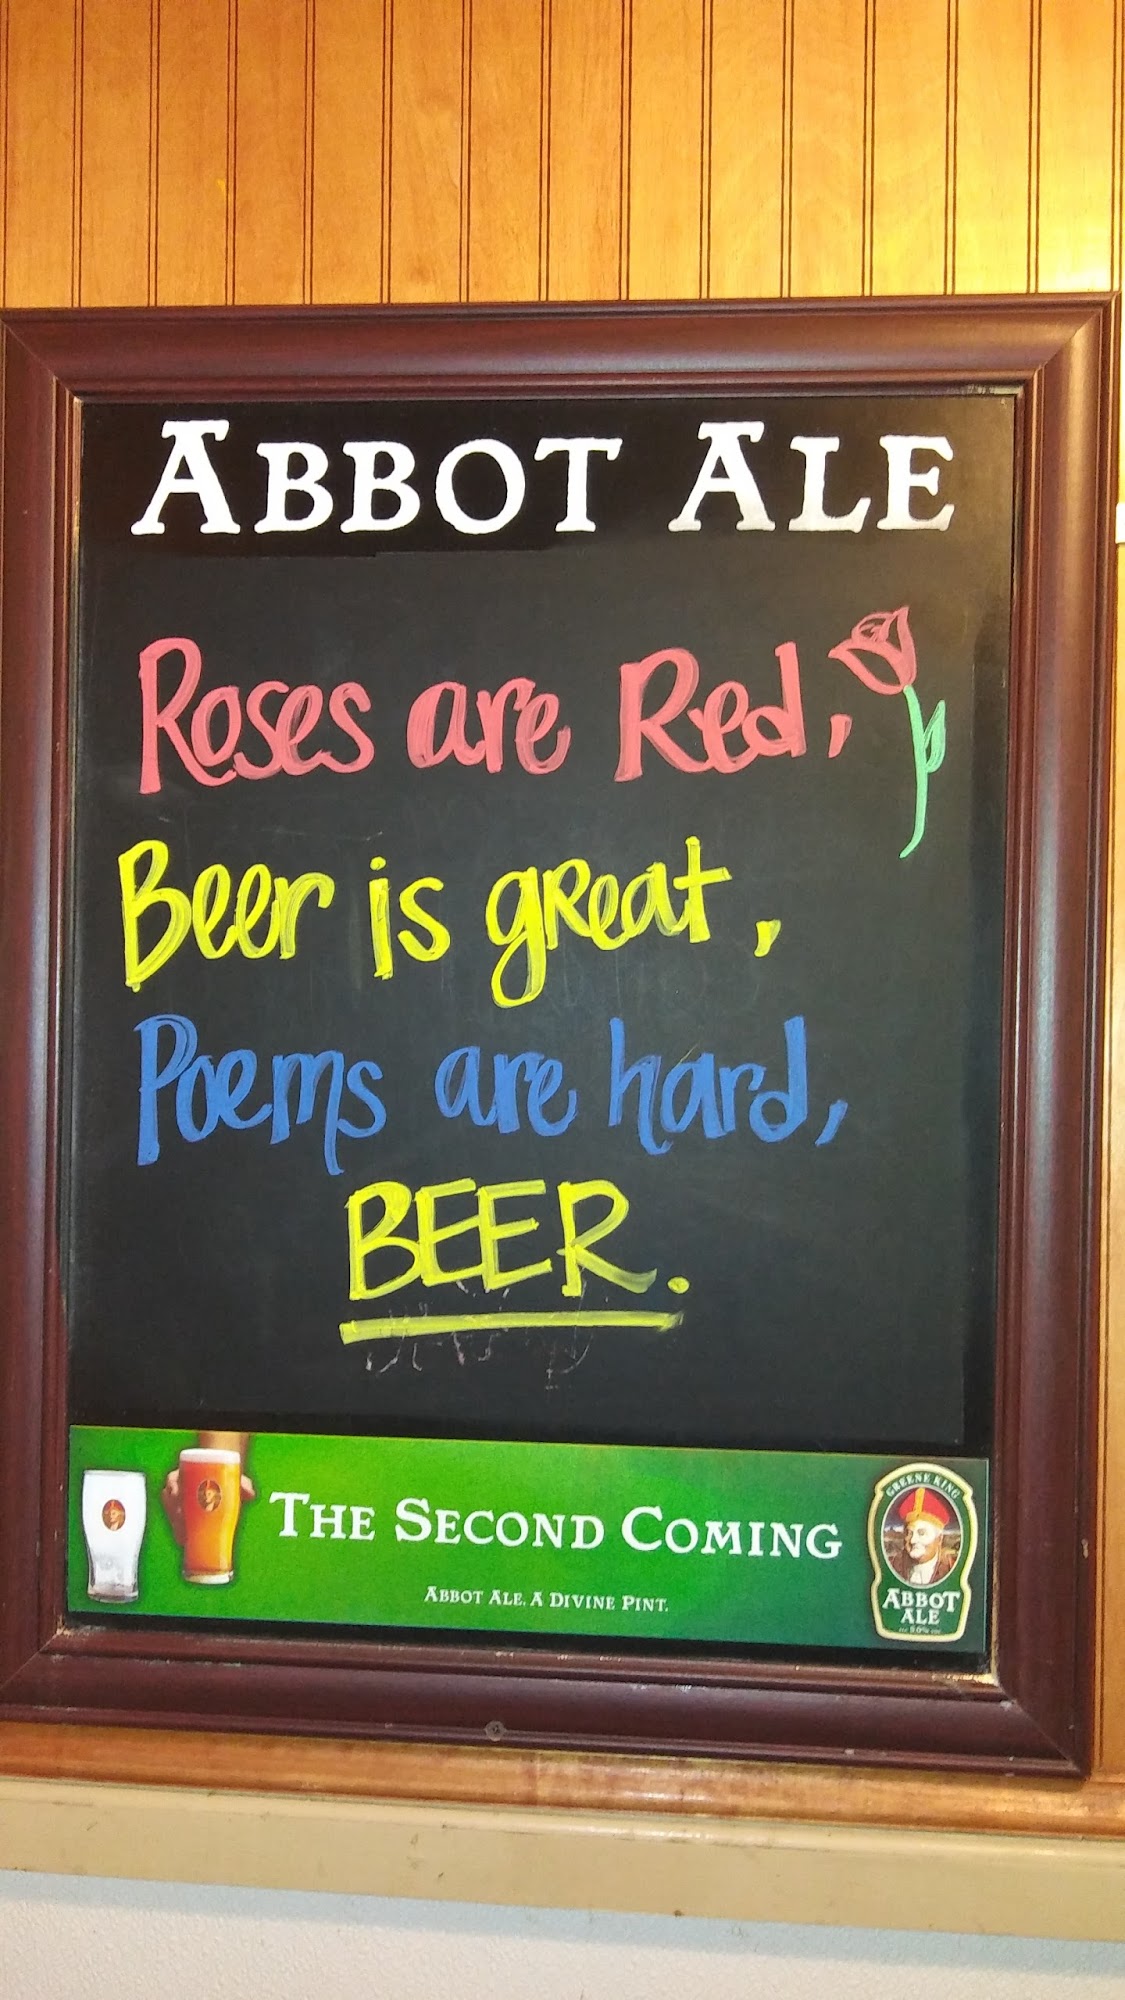 ABBOT ALE
Roses are Red,
Beer is great,
Poems are hard,
BEER.
THE SECOND COMING
ABBOT ALE. A DIVINE PINT.
GREENE KING
ABBOT
ALE